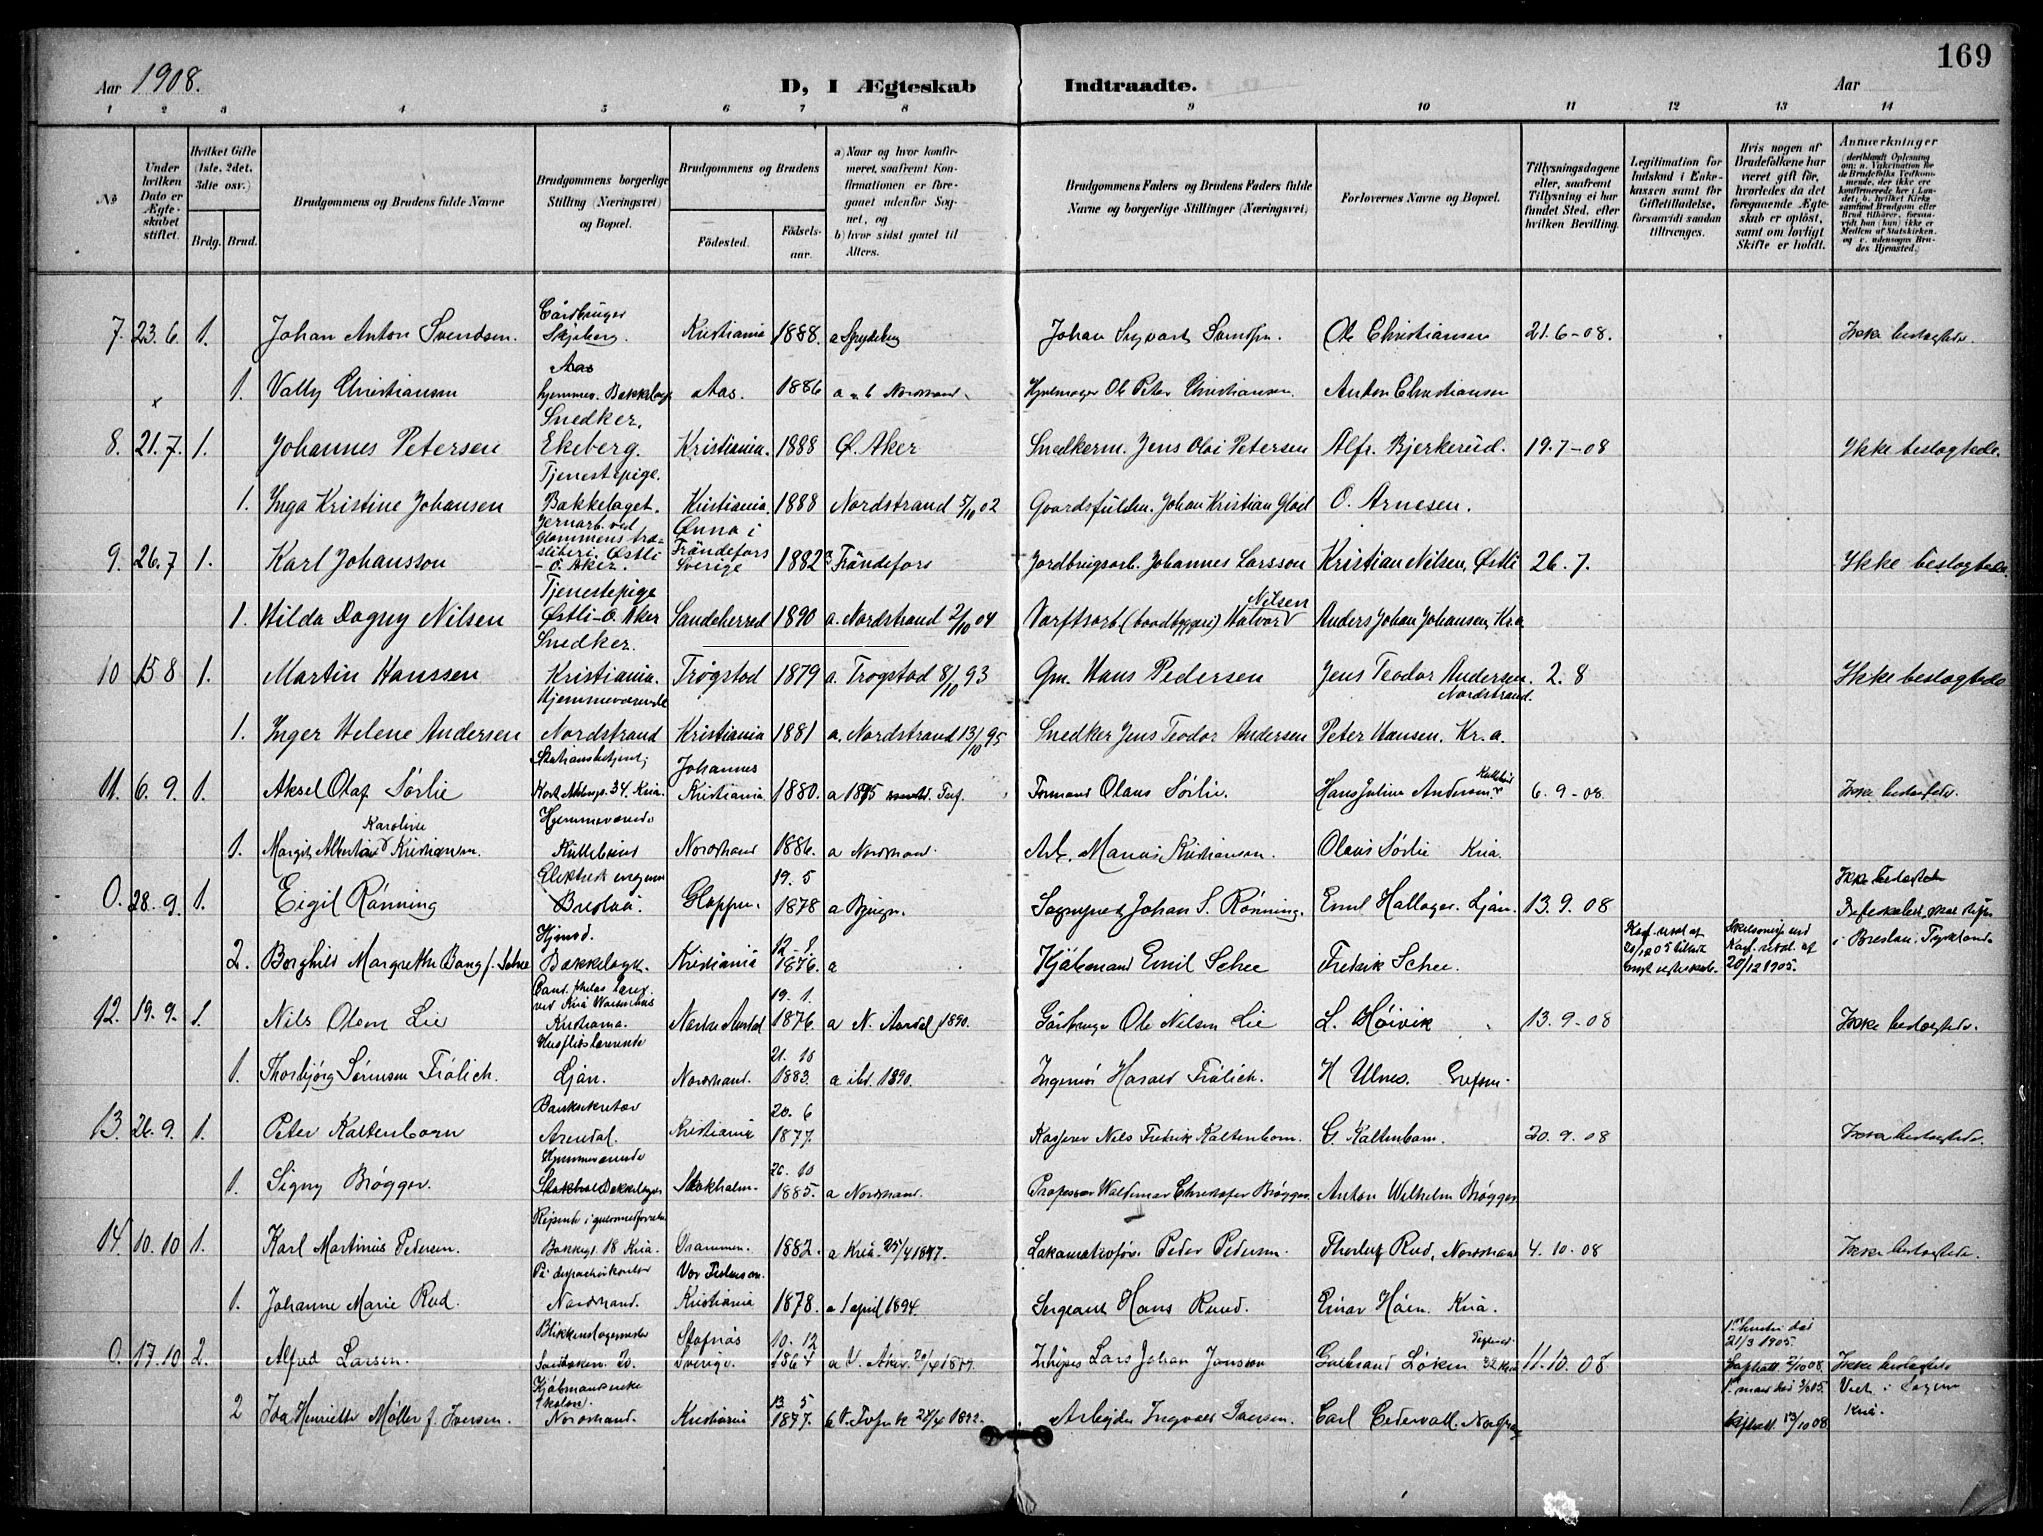 169
Aar 1908.
D, I Ægteskab Indtraadte.
Aar
1 2 3 4 5 6 7 8 9 10 11 12 13 14
No
Under hvilken Dato er Ægteskabet stiftet.
Hvilket Gifte (1ste, 2det, 3die osv.)
Brdg. Brud.
Brudgommens og Brudens fulde Navne
Brudgommens borgerlige Stilling (Næringsvei) og Bopæl.
Brudgommens og Brudens
Fødested.
Fødselsaar.
a) Naar og hvor konfirmeret, saafremt Konfirmationen er foregaaet udenfor Sognet, og
b) hvor sidst gaaet til Alters.
Brudgommens Faders og Brudens Faders fulde Navne og borgerlige Stillinger (Næringsvei)
Forlovernes Navne og Bopæl.
Tillysningsdagene eller, saafremt Tillysning ei har fundet Sted, efter hvilken Bevilling.
Legitimation for Indskud i Enkekassen samt for Giftetilladelse, forsaavidt saadan tiltrænges.
Hvis nogen af Brudefolkene har været gift før, hvorledes da det foregaaende Ægteskab er opløst, samt om lovligt Skifte er holdt.
Anmærkninger
7. 23.6 1. Johan Anton Svendsen. Gårdbruger Skjeberg. Kristiania 1888. a Spydeberg Johan Sigvart Svendsen. Ole Christiansen 21.6-08. Ikke beslægtede.
Aas
1. Valby Christiansen hjemmev. Bekkelaget Aas. 1886 a. b Nordstrand. Hjulmager Ole Peter Christiansen. Anton Christiansen
Snedker.
8. 21.7. 1. Johannes Petersen Ekeberg. Kristiania. 1888 Ø. Aker Snedkerm. Jens Olai Petersen Alfr. Bjerkerud. 19.7-08 Ikke beslægtede.
Tjenestepige.
1. Inga Kristine Johansen Bækkelaget. Kristiania. 1888 Nordstrand 5/10 02 Gaardsfuldm. Johan Kristian Glad O. Arnesen.
Jernarb. ved Glommens træsliberi. Østli - Ø. Aker.
9. 26.7 1. Karl Johansson Ønna i Frändefors Sverige 1882 a Frändefors Jordbrugsarb. Johannes Larsson Kristian Nilsen, Østli 26.7. Ikke beslægtede.
Tjenestepige
1. Hilda Dagny Nilsen Østli - Ø. Aker Sandeherred 1890 a. Nordstrand 2/10 04 Værftsarb (baadbyggeri) Halvard Nilsen Anders Johan Johansen, Kr.a
Snedker.
10 15 8 1. Martin Hanssen Kristiania. Trøgstad 1879 a. Trøgstad 8/10 93 Gm. Hans Pedersen Jens Teodor Andersen. Nordstrand. 2.8 Ikke beslægtede
Hjemmeværende
1. Inger Helene Andersen Nordstrand Kristiania 1881 a. Nordstrand 13/10 95 Snedker Jens Teodor Andersen Peter Hansen. Kr.a.
Stationsbetjent,
11. 6.9. 1. Aksel Olaf Sørlie 34. Kria. Johannes Kristiania 1880. a 1895 Formand Olaus Sørlie. Hans Julius Andersen 6.9-08. Ikke beslægtede.
Hjemmeværende
1. Margit Albertine Karoline Kristiansen. Nordstrand 1886. a Nordstrand. Arb. Marius Kristiansen. Olaus Sørlie Kria.
Elektrisk ingeniør 19.5
0. 28.9. 1. Eigil Rønning Breslau. Gloppen. 1878 a Bjugn. Sogneprest Johan S. Rønning. Emil Hallager. Ljan. 13.9.08 Ikke beslægtede
i Breslau. Tyskland.
Hjemv.
2. Borghild Margrethe Bang f. Schee Bækkelaget. Kristiania 1876. a Kjøbmand Emil Schee Fredrik Schee. Kgl. resol. af 20/12 05 Skilsmisse ved Kgl. resol. af 20/12 1905.
19. 1.
12. 19.9. 1. Nils Olsen Lie Kristiania. Nordre Aurdal 1876. a N. Aurdal 1890. Gårdbruger Ole Nilsen Lie L. Høivik 13.9-08 Ikke beslægtede.
Husflidslærerinde 21. 10
1. Thorbjørg Sørensen Frølich. Ljan. Nordstrand. 1883. a ibd. 1890. Ingeniør Harald Frølich. H Ulnes. Grefsen.
Banksekretær 20. 6
13. 26.9. 1. Peter Kaltenborn Arendal. Kristiania 1877. Kasserer Nils Fredrik Kaltenborn. C. Kaltenborn. 20.9.08 Ikke beslægtede.
Hjemmeværende
1. Signy Brøgger. Bekkelaget Stokholm. 1885. a Nordstrand. Professor Waldemar Christofer Brøgger Anton Wilhelm Brøgger
14. 10.10 1. Karl Martinius Pedersen. Bakkegt. 18 Kria. Drammen. 1882. a Kria. 25/4 1897. Lokomotivfør. Peder Pedersen. Thorleif Rud, Nordstrand 4.10.08 Ikke beslægtede.
Vor Frelsers m.
1. Johanne Marie Rud. Nordstrand. Kristiania 1878. a 1 april 1894. Sergeant Hans Ruud. Einar Høen. Kria.
Blikkenslagermester 10. 12
0. 17.10 2. Alfred Larsen. Sverige. 1867 a V. Aker. 20/4 1879. Lars Johan Jansson Gulbrand Løken 32 Kria 11.10.08 21/3 1905. Ikke beslægtede
Kjøbmandsenke 13. 5
2 Ida Henriette Møller f. Iversen. Nordstrand. Kristiania 1877. 24/4 1892. Arbeider Ingvald Iversen. Carl Cedervall. Kria.